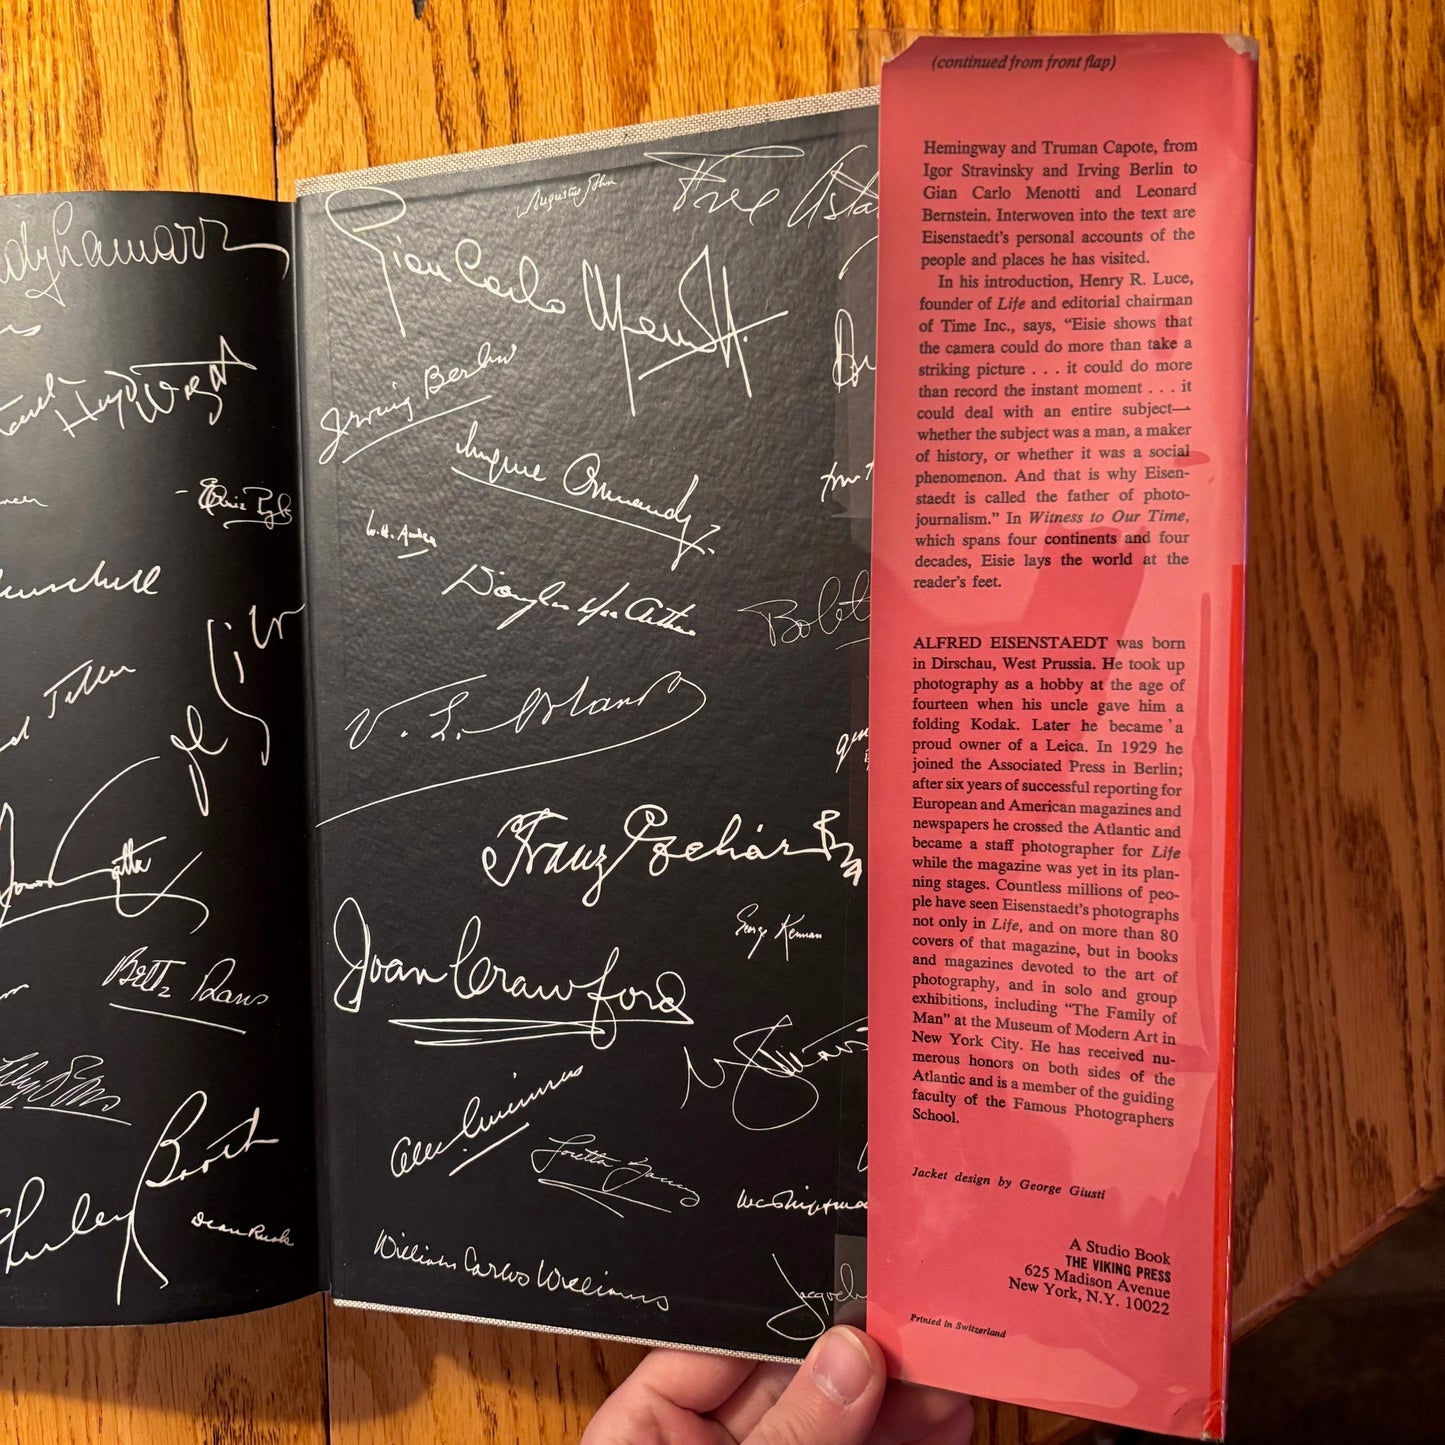 Hedy Lamarr
Bette Davis
Shirley Booth
Dean Rusk
Augustus John
Fred Asta
Gian Carlo Menotti
Irving Berlin
Eugene Ormandy
W. H. Auden
Douglas MacArthur
Franz
Joan Crawford
George Kennan
Alec Guinness
Loretta Young
William Carlos Williams
(continued from front flap)
Hemingway and Truman Capote, from
Igor Stravinsky and Irving Berlin to
Gian Carlo Menotti and Leonard
Bernstein. Interwoven into the text are
Eisenstaedt's personal accounts of the
people and places he has visited.
In his introduction, Henry R. Luce,
founder of Life and editorial chairman
of Time Inc., says, “Eisie shows that
the camera could do more than take a
striking picture . . . it could do more
than record the instant moment . . . it
could deal with an entire subject—
whether the subject was a man, a maker
of history, or whether it was a social
phenomenon. And that is why Eisen-
staedt is called the father of photo-
journalism.” In Witness to Our Time,
which spans four continents and four
decades, Eisie lays the world at the
reader's feet.
ALFRED EISENSTAEDT was born
in Dirschau, West Prussia. He took up
photography as a hobby at the age of
fourteen when his uncle gave him a
folding Kodak. Later he became a
proud owner of a Leica. In 1929 he
joined the Associated Press in Berlin;
after six years of successful reporting for
European and American magazines and
newspapers he crossed the Atlantic and
became a staff photographer for Life
while the magazine was yet in its plan-
ning stages. Countless millions of peo-
ple have seen Eisenstaedt's photographs
not only in Life, and on more than 80
covers of that magazine, but in books
and magazines devoted to the art of
photography, and in solo and group
exhibitions, including “The Family of
Man” at the Museum of Modern Art in
New York City. He has received nu-
merous honors on both sides of the
Atlantic and is a member of the guiding
faculty of the Famous Photographers
School.
Jacket design by George Giusti
A Studio Book
THE VIKING PRESS
625 Madison Avenue
New York, N.Y. 10022
Printed in Switzerland